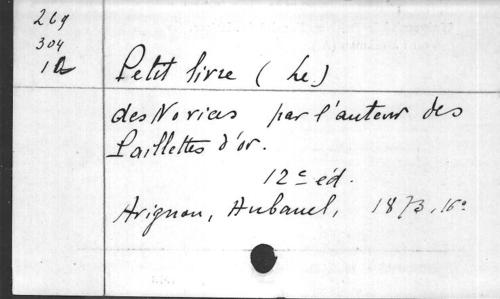 269
304
12
Petit livre (Le)
des Novices par l'auteur des
Paillettes d'or.
12e éd.
Avignon, Aubanel, 1873, 16°